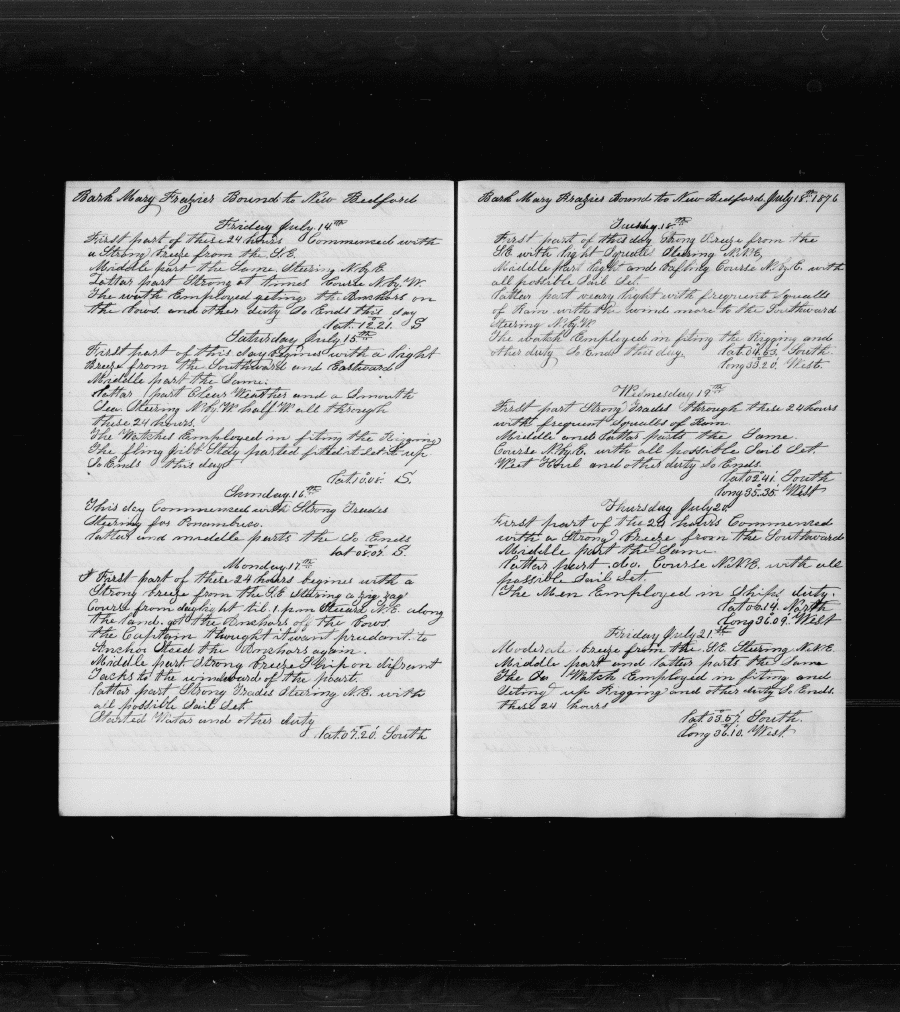 Bark Mary Frazier Bound to New Bedford
Friday July 14th
First part of these 24 hours Commenced with
a Strong breeze from the S.E.
Middle part the Same Steering N.b.E
Latter part Strong at times Course N.by.W.
The watch Employed geting the Anchors on
the bows. and other duty So Ends this day
Lat. 12.21. S
Saturday July 15th
First part of this day begines with a light
Breeze from the Southward and Eastward
Middle part the Same.
Lattar part Clear Weather and a Smouth
Sea. Steering N.by.W half W all through
these 24 hours.
The Watches Employed in fiting the Rigging
The fling jibb Stay parted fited it Set it up
So Ends this day
Lat. 10.01. S.
Sunday 16th
This day Commenced with Strong Trades
Steering for Pnambuco.
lattar and middle parts the So Ends
Lat 08.07. S
Monday 17th
First part of these 24 hours begines with a
Strong breeze from the S.E Steering a zag zag
Course from daylight til. 1. p.m Steered N.E. along
the land. got the Anchors off the bows.
the Capttain thought it want prudant to
Anchor Steed the Anchors again.
Middle part Strong breeze Ship on difrant
Tacks to the windward of the poart.
lattar part Strong Trades Steering N.E. with
all possible Sail Set
Started Watar and other duty
Lat. 07.20. South
Bark Mary Frazier Bound to New Bedford July 18th 1876
Tuesday 18th
First part of this day Strong Breeze from the
S.E. with light Squalls Steering N.N.E,
Middle part light and Bafling Course N.by.E. with
all possible Sail Set.
Lattar part veary light with frequent Squalls
of Rain with the wind more to the Southward
Steering N.by.W
The watch Employed in fiting the Rigging and
other duty So Ends this day. Lat 04.53. South.
Long 35.20. West.
Wednesday 19th
First part Strong Trades through these 24 hours
with frequent Squalls of Rain.
Middle and lattar parts the Same.
Course N.by.E. with all possible Sail Set.
West and other duty So Ends.
Lat 02.41. South
Long 35.35. West
Thursday July 20.
First part of the 24 hours Commenced
with a Strong breeze from the Southward
Middle part the Same.
lattar part. do. Course N.N.E. with all
possible Sail Set.
The Men Employed in Ships duty.
Lat 00.14. North
Long 36.09. West
Friday July 21.st
Moderate breeze from the S.E Steering N.N.E.
Middle part and lattar parts the Same
The Watch Employed in fiting and
Seting up Rigging and other duty So Ends.
these 24 hours
Lat. 03.57. South.
Long 36.10. West.